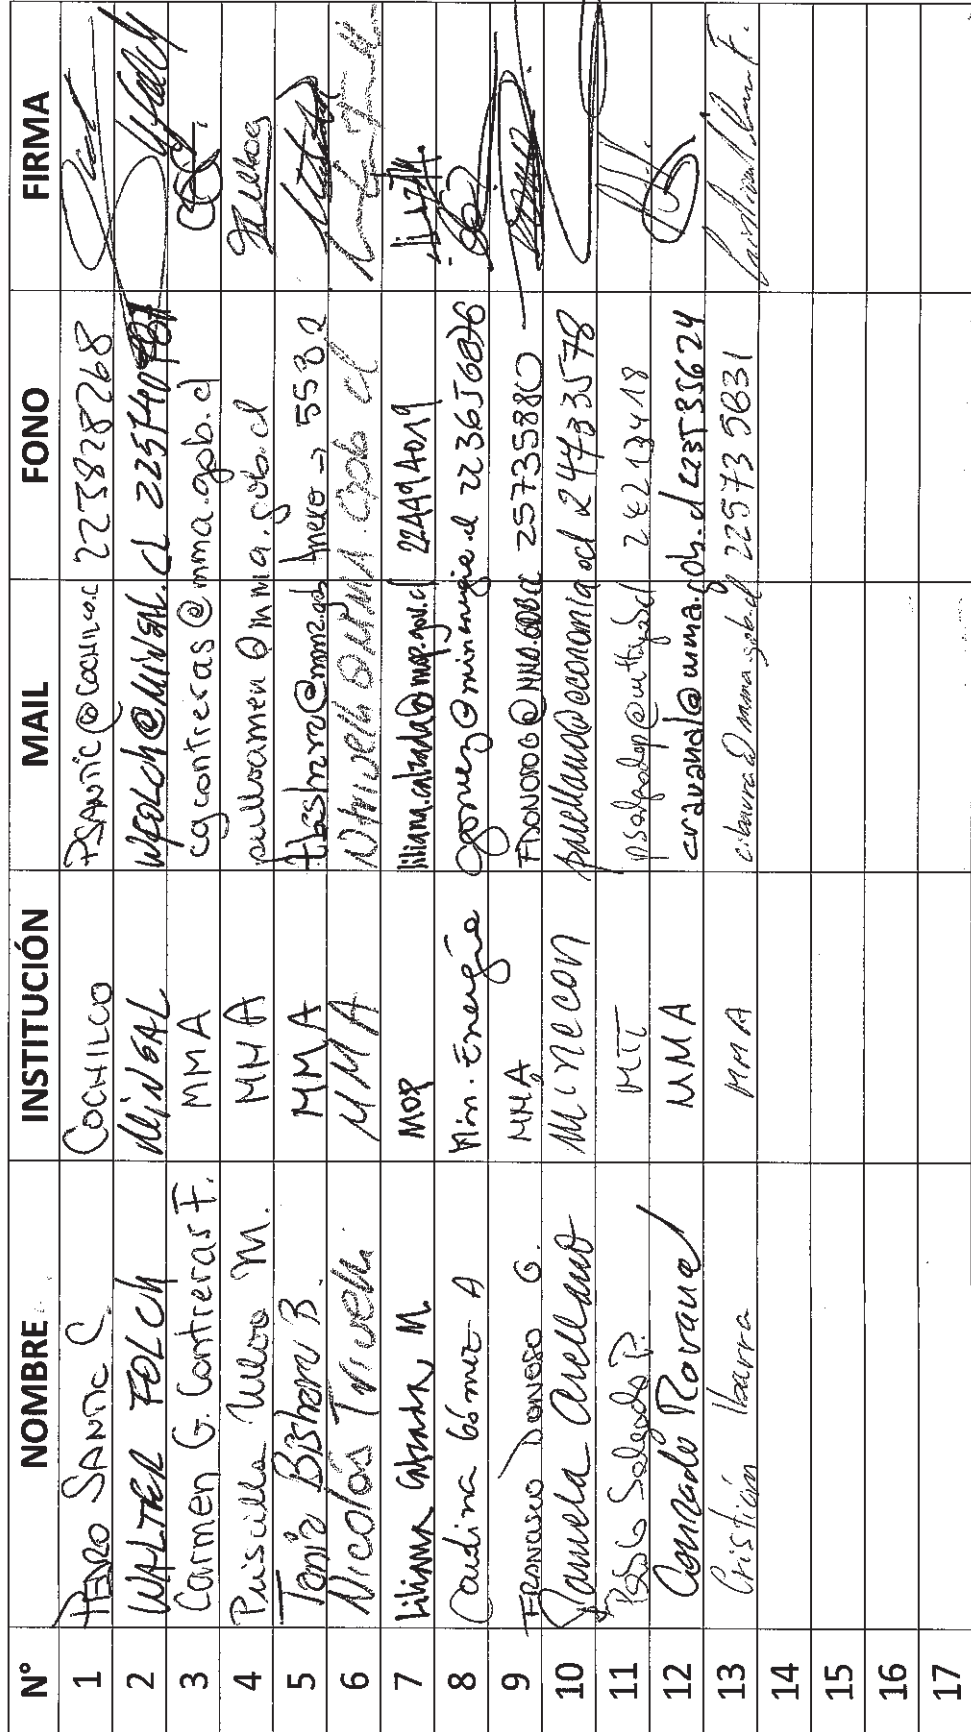 N° NOMBRE INSTITUCIÓN MAIL FONO FIRMA
1 PEDRO SANTIC C. COCHILCO PSANTIC@COCHILCO.C 223828268
2 WALTER FOLCH MINSAL WFOLCH@MINSAL.CL
3 Carmen G. Contreras F. MMA cgcontreras@mma.gob.cl
4 Priscilla Ulloa M. MMA pulloamen@mma.gob.cl
5 B. MMA Anexo → 5582
6 Nicolás Trivelli MMA
7 Liliana Calzada M. MOP liliana.calzada@mop.gov.cl 224494019
8 Claudina Gómez A Min. Energía 223656876
9 FRANCISCO DONOSO G. MMA 25735880
10 Pamela Arellano Minecon parellano@economia.cl 24733578
11 Pablo Salgado P. MTT 24213418
12 Conrado Ravanal MMA cravanal@mma.gob.cl 225735624
13 Cristián Ibarra MMA cibarra@mma.gob.cl 22573 5831
14
15
16
17